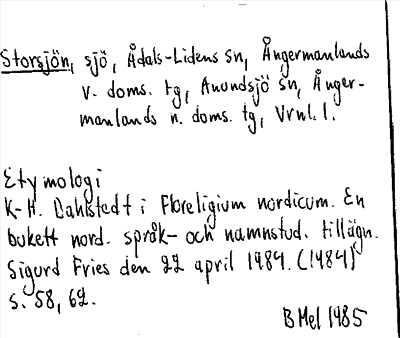 Storsjön, sjö, Ådals-Lidens sn, Ångermanlands
v. doms. tg, Anundsjö sn, Ånger-
manlands n. doms. tg, Vrnl. l.
Etymologi
K-H. Dahlstedt i Florilegium nordicum. En
bukett nord. språk- och namnstud. tillägn.
Sigurd Fries den 22 april 1984. (1984)
s. 58, 62.
BMel 1985